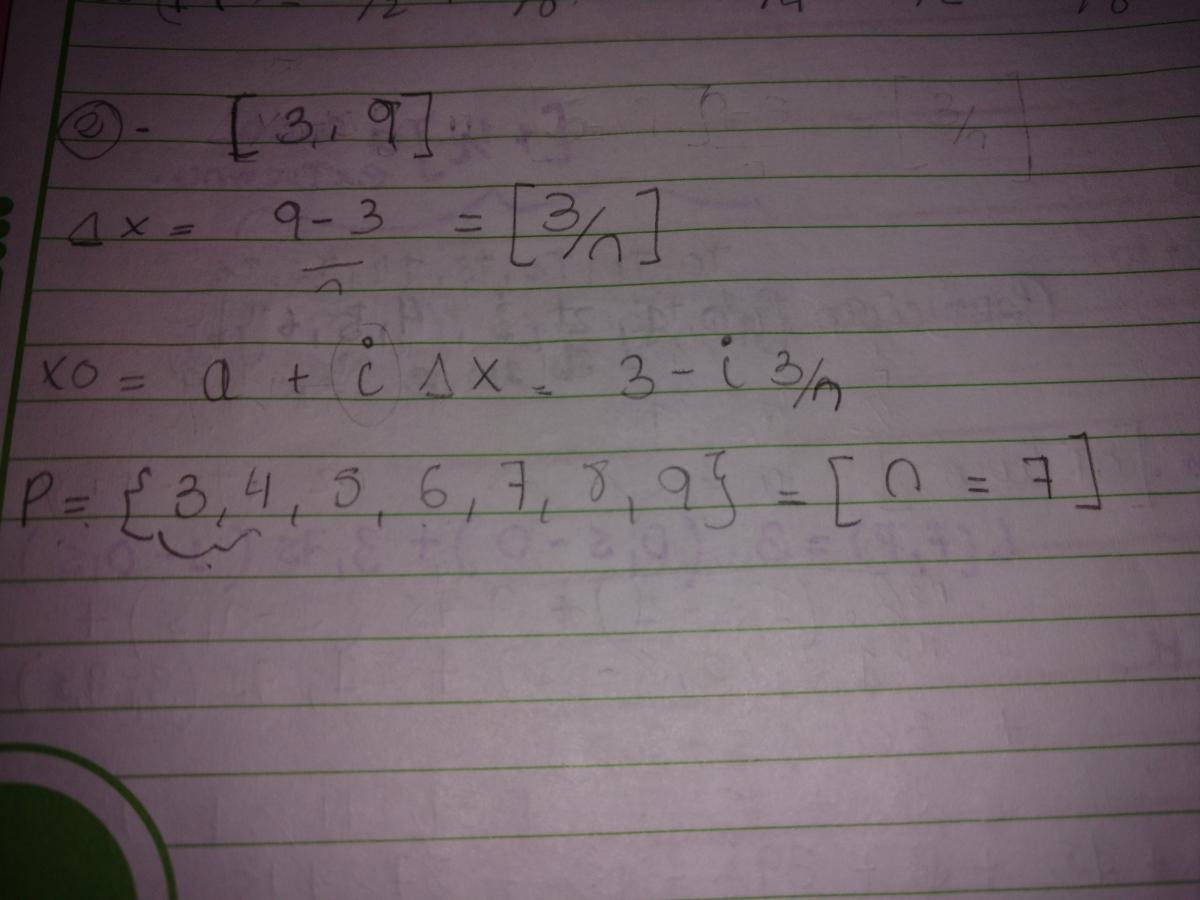 e - [3, 9]
Δx = 9-3/n = [3/n]
xo = a + i Δx = 3 - i 3/n
P = {3, 4, 5, 6, 7, 8, 9} = [n = 7]